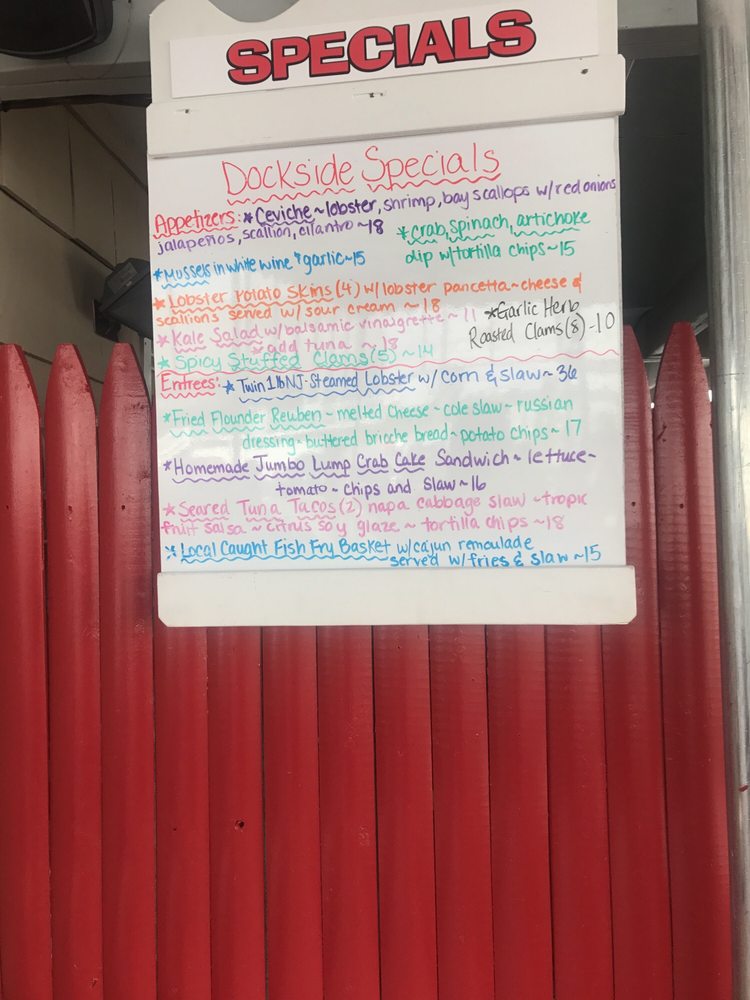 SPECIALS
Dockside Specials
Appetizers: *Ceviche~lobster, shrimp, bay scallops w/red onions
jalapeños, scallion, cilantro ~18
*crab, spinach, artichoke
dip w/tortilla chips~15
*Mussels in white wine & garlic~15
*Lobster Potato Skins (4) w/lobster pancetta~cheese &
scallions served w/ sour cream ~ 18
*Kale Salad w/balsamic vinaigrette ~ 11
add tuna ~ 18
*Garlic Herb
Roasted Clams (8) -10
*Spicy Stuffed Clams (5) ~ 14
Entrees: *Twin 1lb NJ-Steamed Lobster w/ corn & slaw~ 36
*Fried Flounder Reuben ~ melted cheese ~ cole slaw ~ russian
dressing~ buttered brioche bread~ potato chips~ 17
*Homemade Jumbo Lump Crab Cake Sandwich ~ lettuce~
tomato ~ chips and slaw ~16
*Seared Tuna Tacos (2) napa cabbage slaw ~tropic
fruit salsa ~ citrus soy glaze ~ tortilla chips ~18
*Local Caught Fish Fry Basket w/cajun remoulade
served w/fries & slaw ~15